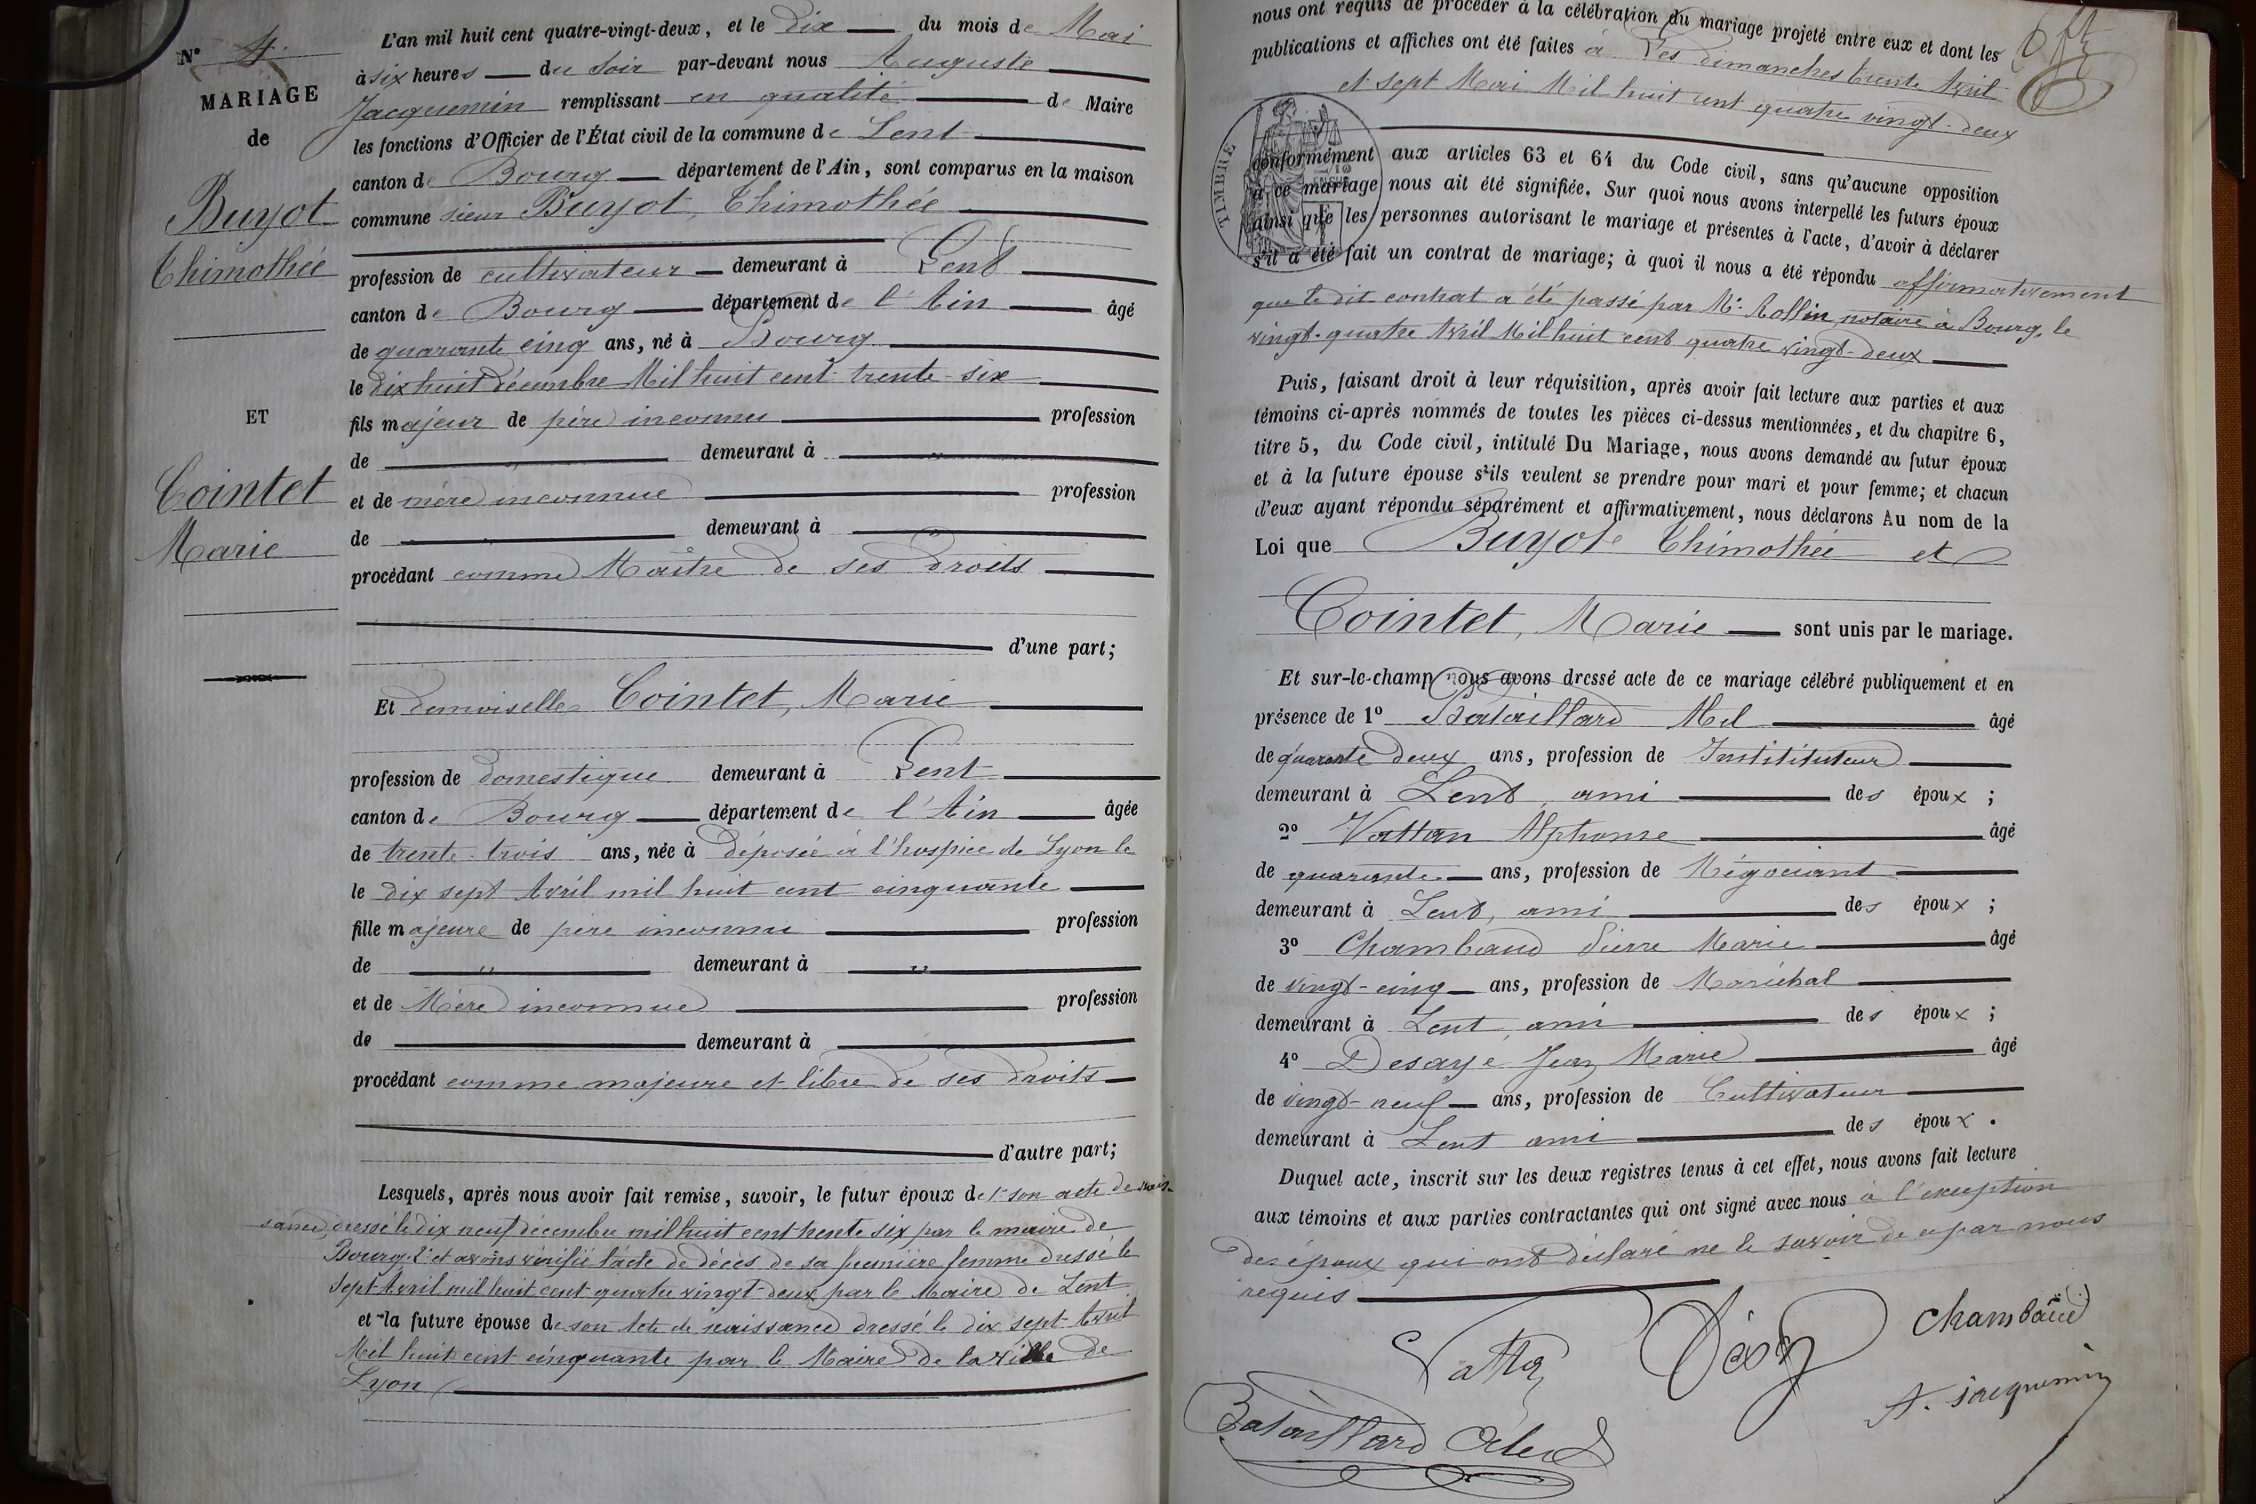 N° 4.
MARIAGE
de
Buyot
Thimothée
ET
Cointet
Marie
L'an mil huit cent quatre-vingt-deux, et le dix du mois de Mai
à six heures du soir par-devant nous Auguste
Jacquemin remplissant en qualité de Maire
les fonctions d'Officier de l'État civil de la commune de Lent
canton de Bourg département de l'Ain, sont comparus en la maison
commune sieur Buyot, Thimothée
profession de cultivateur demeurant à Lent
canton de Bourg département de l'Ain âgé
de quarante cinq ans, né à Bourg
le dix huit décembre Mil huit cent trente-six
fils majeur de père inconnu profession
de " demeurant à "
et de mère inconnue profession
de demeurant à
procédant comme Maître de ses droits
d'une part;
Et demoiselle Cointet, Marie
profession de domestique demeurant à Lent
canton de Bourg département de l'Ain âgée
de trente-trois ans, née à Déposée à l'hospice de Lyon le
le dix sept Avril mil huit cent cinquante
fille majeure de père inconnu profession
de " demeurant à "
et de Mère inconnue profession
de demeurant à
procédant comme majeure et libre de ses droits
d'autre part;
Lesquels, après nous avoir fait remise, savoir, le futur époux de 1° son acte de nais-
sance, dressé le dix neuf décembre mil huit cent trente six par le maire de
Bourg, 2° et avons vérifié l'acte de décès de sa première femme dressé le
sept Avril mil huit cent quatre vingt-deux par le Maire de Lent
et la future épouse de son Acte de naissance dressé le dix sept Avril
Mil huit cent cinquante par le Maire de la ville de
Lyon
nous ont requis de procéder à la célébration du mariage projeté entre eux et dont les
publications et affiches ont été faites à Les dimanches trente Avril
et sept Mai Mil huit cent quatre vingt-deux
TIMBRE
conformément aux articles 63 et 64 du Code civil, sans qu'aucune opposition
à ce mariage nous ait été signifiée. Sur quoi nous avons interpellé les futurs époux
ainsi que les personnes autorisant le mariage et présentes à l'acte, d'avoir à déclarer
s'il a été fait un contrat de mariage; à quoi il nous a été répondu affirmativement
que le dit contrat a été passé par Me. Rollin notaire à Bourg, le
vingt-quatre Avril Mil huit cent quatre vingt-deux
Puis, faisant droit à leur réquisition, après avoir fait lecture aux parties et aux
témoins ci-après nommés de toutes les pièces ci-dessus mentionnées, et du chapitre 6,
titre 5, du Code civil, intitulé Du Mariage, nous avons demandé au futur époux
et à la future épouse s'ils veulent se prendre pour mari et pour femme; et chacun
d'eux ayant répondu séparément et affirmativement, nous déclarons Au nom de la
Loi que Buyot Thimothée et
Cointet, Marie sont unis par le mariage.
Et sur-le-champ nous avons dressé acte de ce mariage célébré publiquement et en
présence de 1° Bataillard Abel âgé
de quarante deux ans, profession de Institituteur
demeurant à Lent, ami des époux ;
2° Vattan Alphonse âgé
de quarante ans, profession de Négociant
demeurant à Lent, ami des époux ;
3° Chambaud Pierre Marie âgé
de vingt-cinq ans, profession de Maréchal
demeurant à Lent ami des époux ;
4° Desayé Jean Marie âgé
de vingt-neuf ans, profession de Cultivateur
demeurant à Lent ami des époux .
Duquel acte, inscrit sur les deux registres tenus à cet effet, nous avons fait lecture
aux témoins et aux parties contractantes qui ont signé avec nous à l'exception
des époux qui ont déclaré ne le savoir de ce par nous
requis
Chambaud
A. Jacquemin
Bataillard Abel